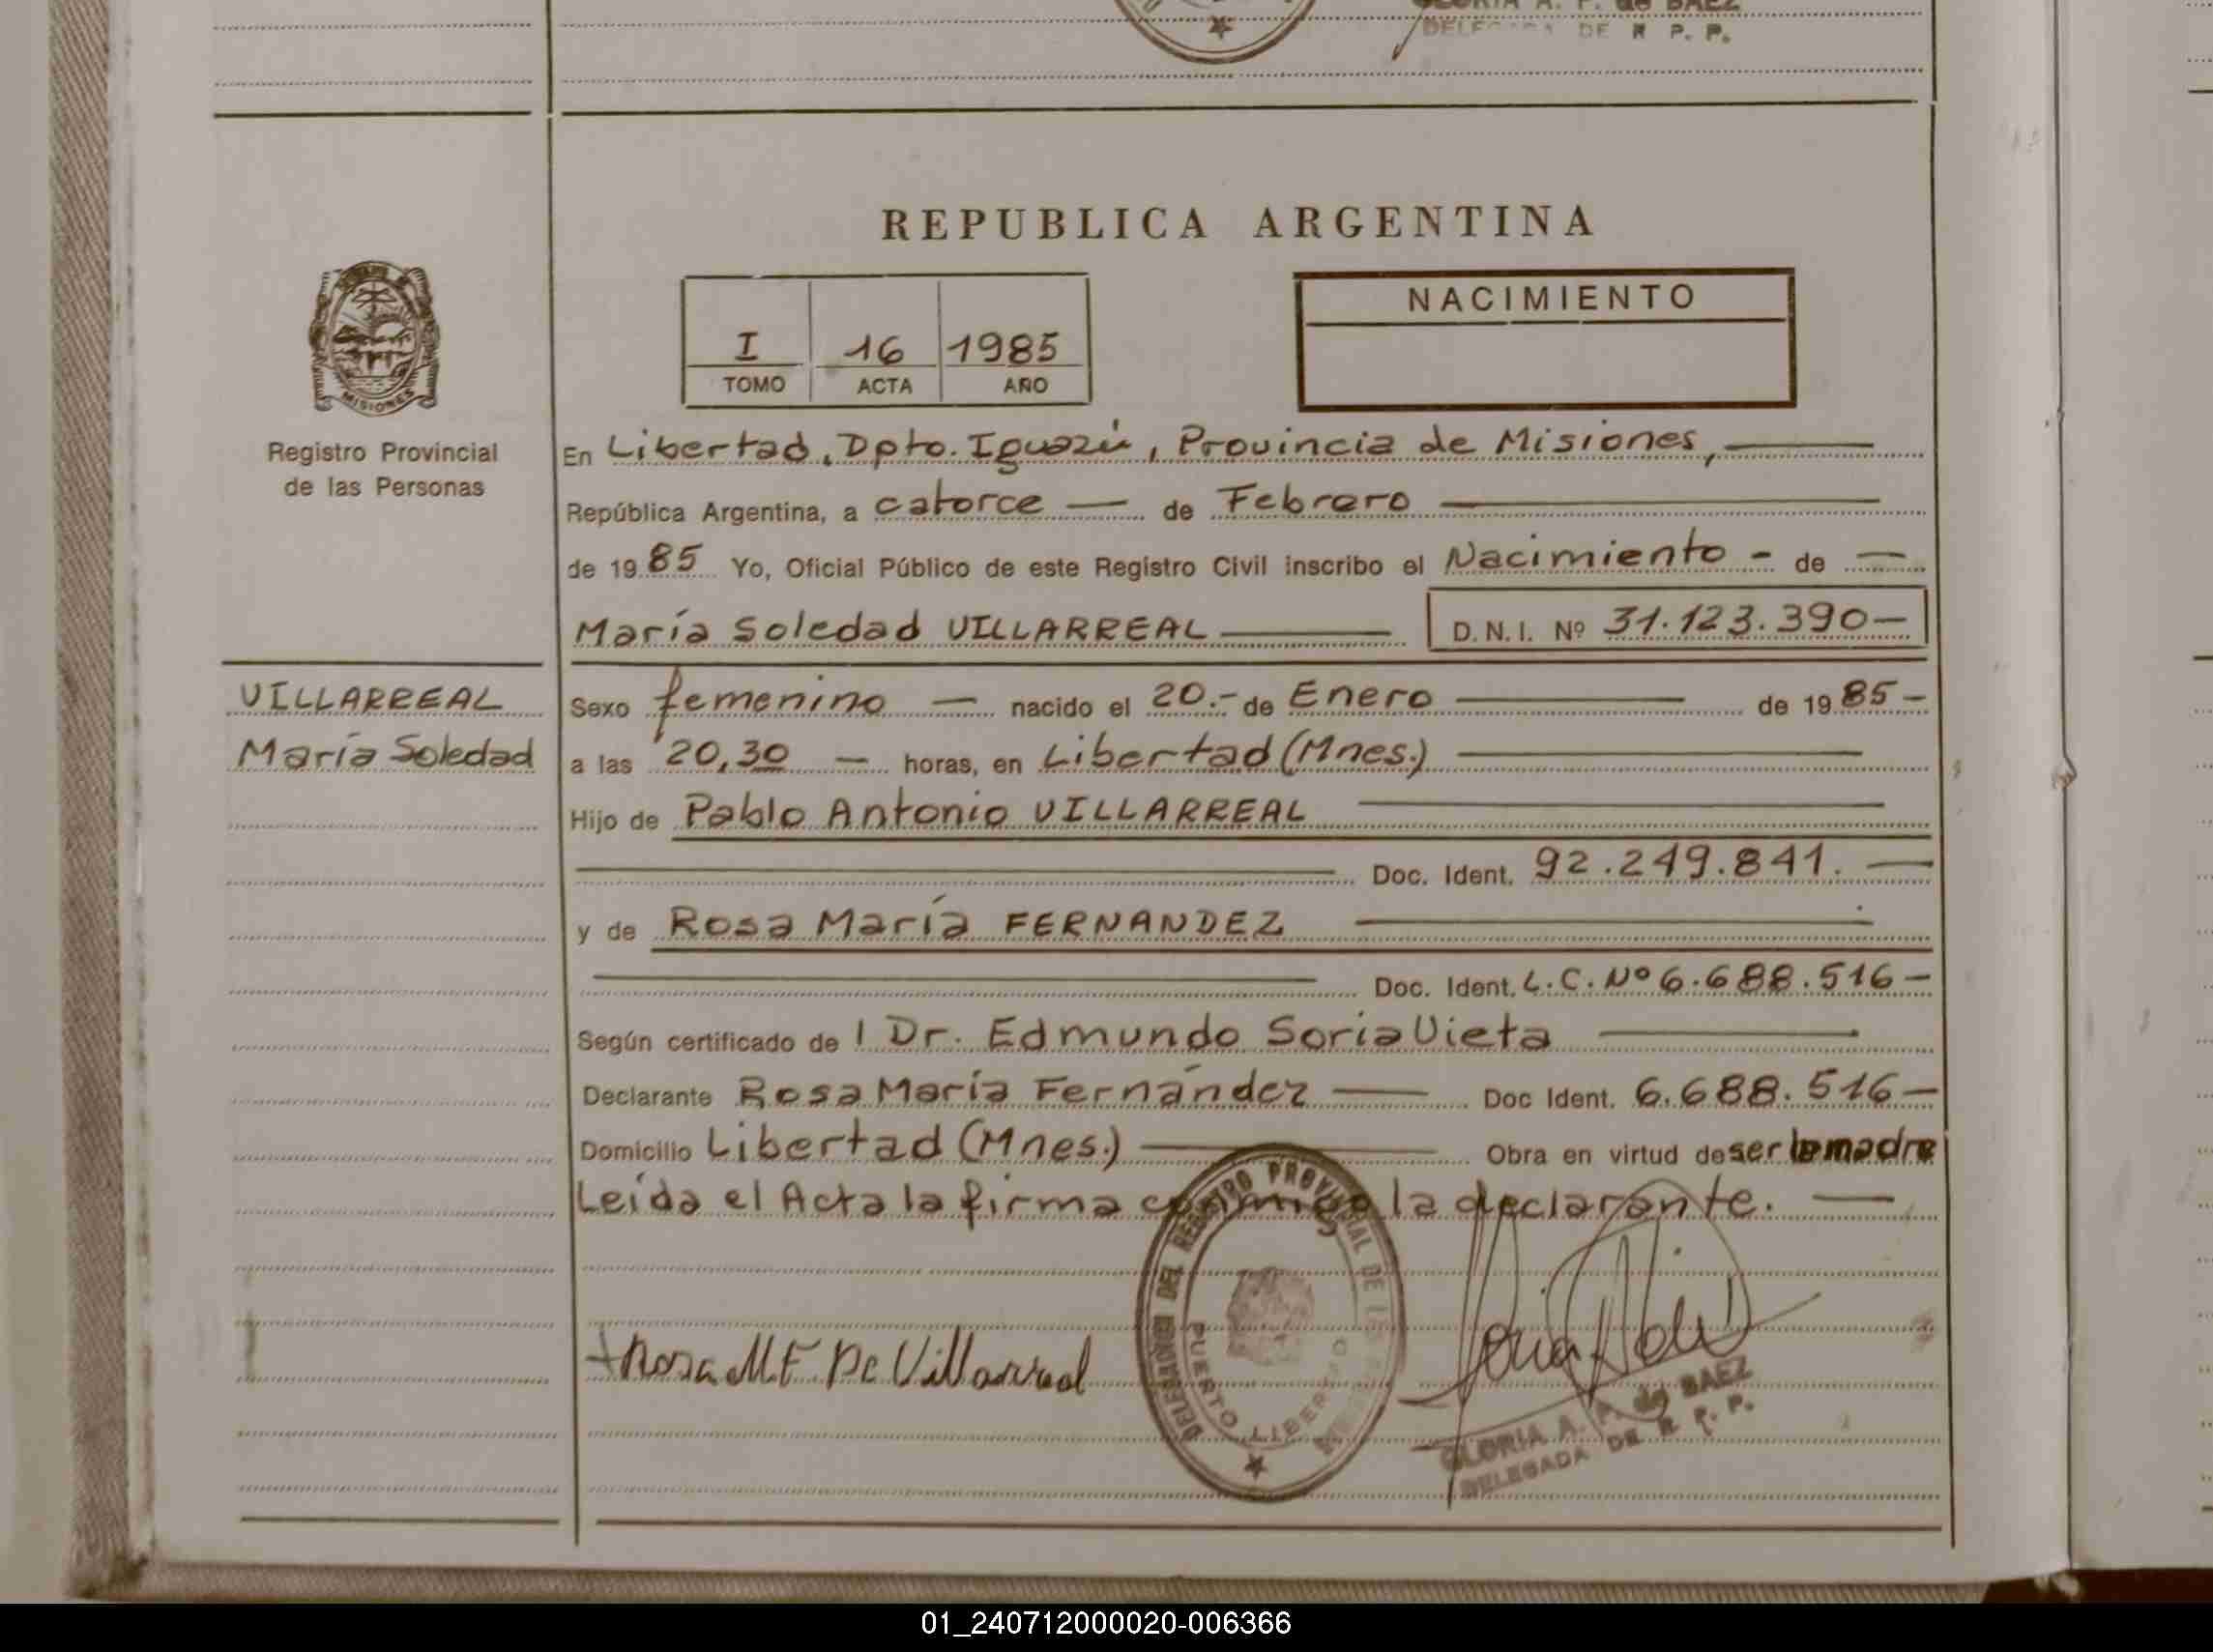 GLORIA A. P. de BAEZ
DELEGADA DE R P. P.
REPUBLICA ARGENTINA
NACIMIENTO
I 16 1985
TOMO ACTA AÑO
MISIONES
Registro Provincial
de las Personas
En Libertad, Dpto. Iguazú, Provincia de Misiones,
República Argentina, a catorce — de Febrero
de 1985 Yo, Oficial Público de este Registro Civil inscribo el Nacimiento - de —
María Soledad VILLARREAL D.N.I. Nº 31.123.390—
VILLARREAL
María Soledad
Sexo femenino — nacido el 20.- de Enero — de 1985-
a las 20,30 — horas, en Libertad (Mnes.)
Hijo de Pablo Antonio VILLARREAL
Doc. Ident. 92.249.841. —
y de Rosa María FERNANDEZ
Doc. Ident. L.C. Nº 6.688.516-
Según certificado de l Dr. Edmundo Soria Vieta
Declarante Rosa María Fernández — Doc Ident. 6.688.516-
Domicilio Libertad (Mnes.) — Obra en virtud de ser la madre
Leída el Acta la firma conmigo la declarante. —
DELEGACION DEL REGISTRO PROVINCIAL DE LAS
PUERTO LIBERTAD
Rosa M F De Villarreal
GLORIA A. P. de BAEZ
DELEGADA DE R. P. P.
01_240712000020-006366